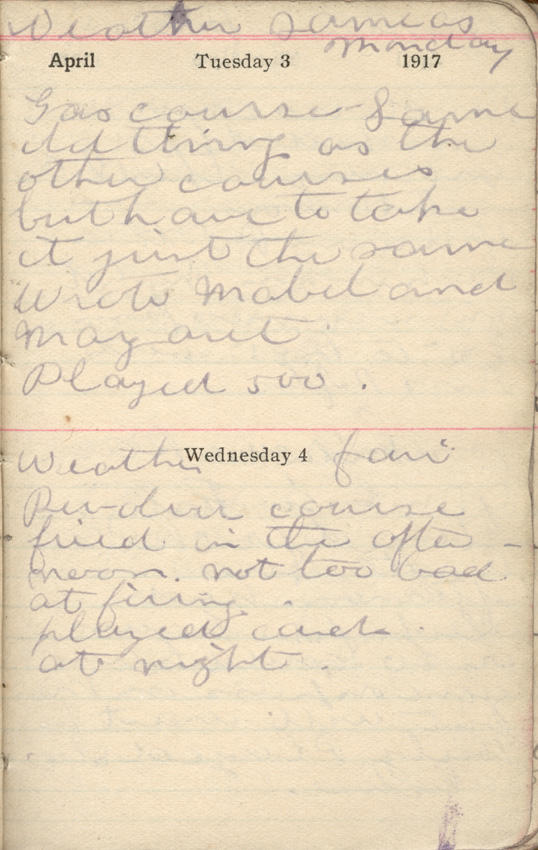 Weather same as
Monday
April Tuesday 3 1917
Gas course Same
old thing as the
other courses
but have to take
it just the same
Wrote Mabel and
Margaret.
Played 500.
Wednesday 4
Weather fair
Revolver course
fired in the after-
noon. not too bad
at firing.
played cards.
at night.